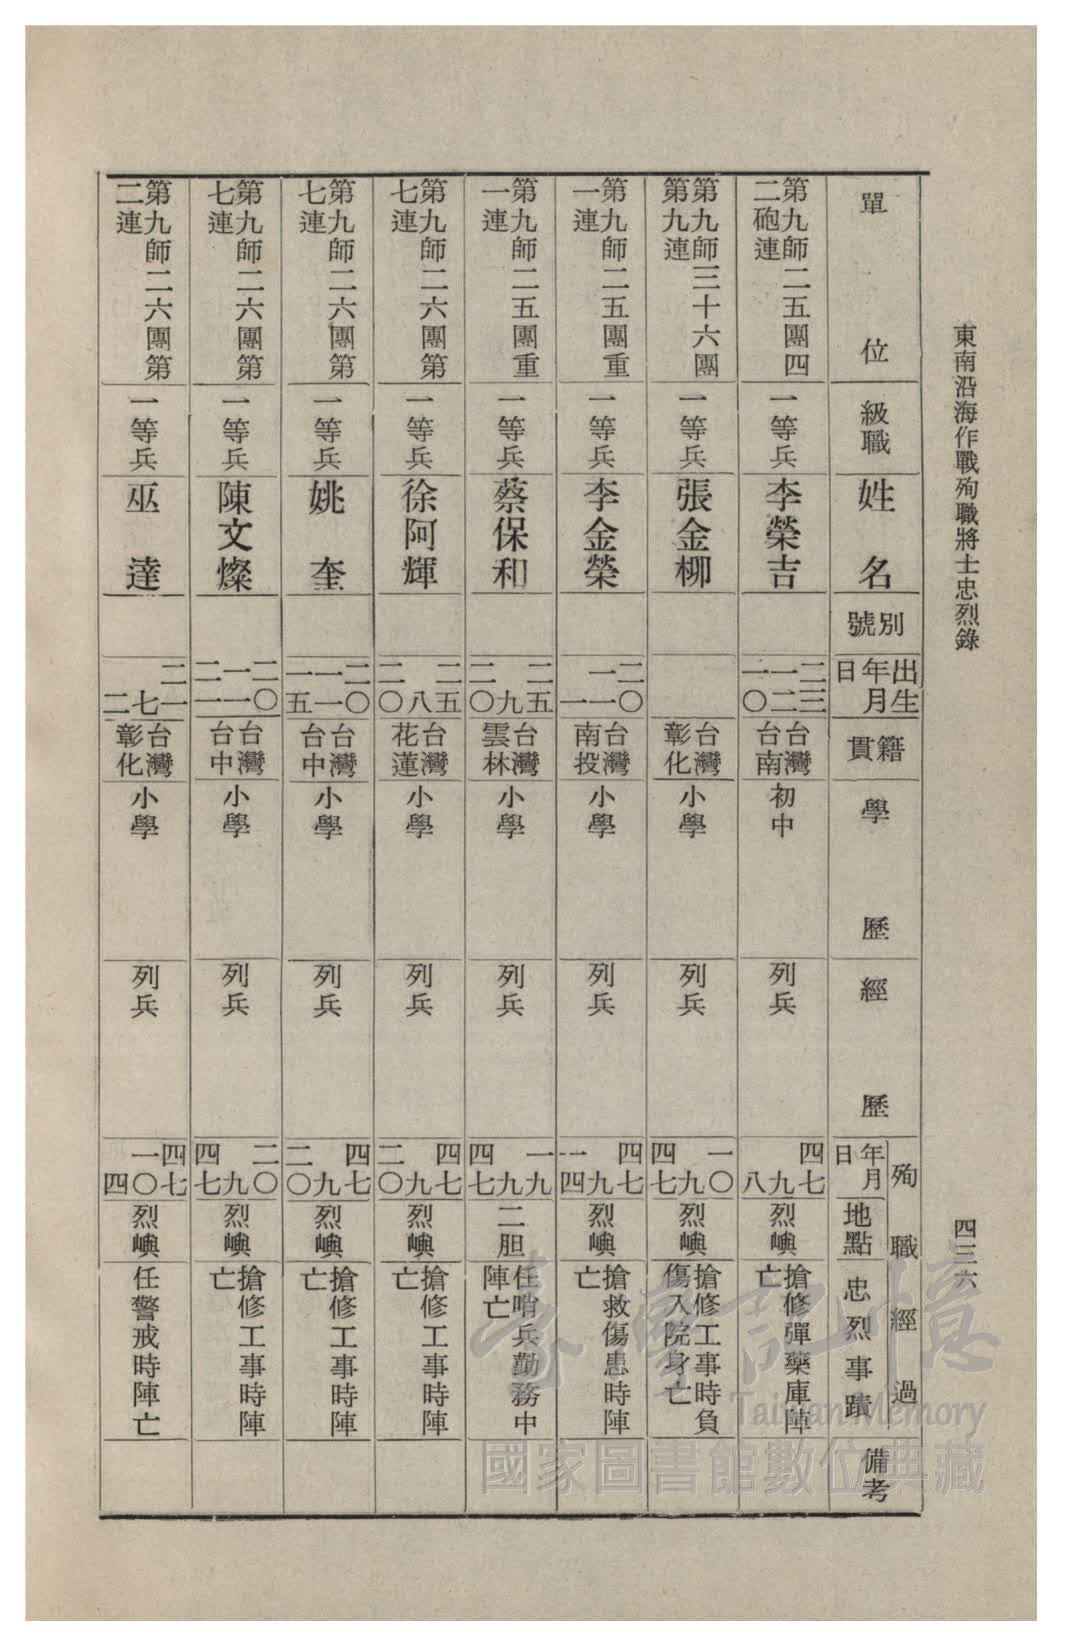 東南沿海作戰殉職將士忠烈錄
四三六
單位
級職
姓名
別號
出生年月日
籍貫
學歷
經歷
殉職經過
年月日
地點
忠烈事蹟
備考
第九師二五團四
二砲連
一等兵
李榮吉
二三
一二
一〇
台灣
台南
初中
列兵
四七
九
八
烈嶼
搶修彈藥庫陣
亡
第九師三十六團
第九連
一等兵
張金柳
台灣
彰化
小學
列兵
一〇
九
四七
烈嶼
搶修工事時負
傷入院身亡
第九師二五團重
一連
一等兵
李金榮
二〇
一一
一
台灣
南投
小學
列兵
四七
九
一四
烈嶼
搶救傷患時陣
亡
第九師二五團重
一連
一等兵
蔡保和
二五
九
二〇
台灣
雲林
小學
列兵
一九
九
四七
二胆
任哨兵勤務中
陣亡
第九師二六團第
七連
一等兵
徐阿輝
二五
八
二〇
台灣
花蓮
小學
列兵
四七
九
二〇
烈嶼
搶修工事時陣
亡
第九師二六團第
七連
一等兵
姚奎
二〇
一一
一五
台灣
台中
小學
列兵
四七
九
二〇
烈嶼
搶修工事時陣
亡
第九師二六團第
七連
一等兵
陳文燦
二〇
一一
二一
台灣
台中
小學
列兵
二〇
九
四七
烈嶼
搶修工事時陣
亡
第九師二六團第
二連
一等兵
巫達
二一
七
二
台灣
彰化
小學
列兵
四七
一〇
四
烈嶼
任警戒時陣亡
臺灣記憶
Taiwan Memory
國家圖書館數位典藏